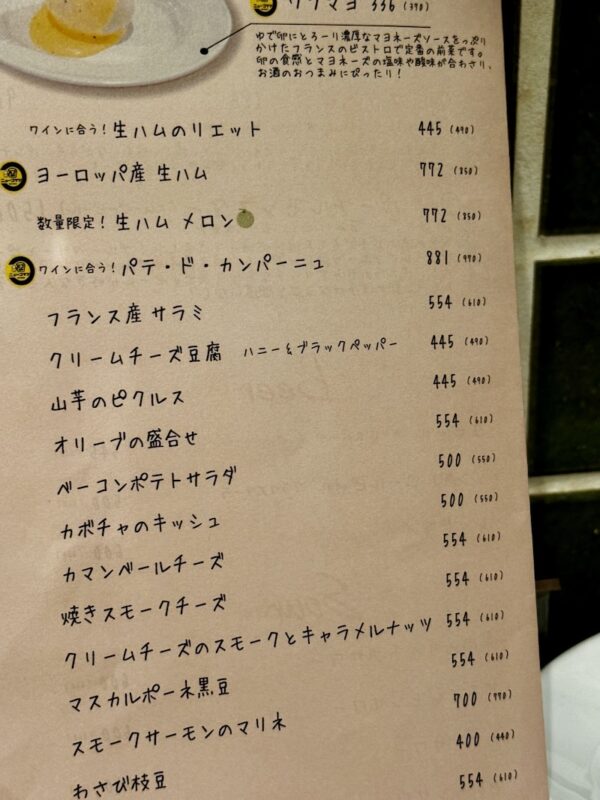 ウフマヨ 336 (370)
ゆで卵にとろーり濃厚なマヨネーズソースをっぷり
かけたフランスのビストロで定番の前菜です。
卵の食感とマヨネーズの塩味や酸味が合わさり、
お酒のおつまみにぴったり！
ワインに合う！生ハムのリエット 445 (490)
ヨーロッパ産 生ハム 772 (850)
数量限定！生ハム メロン 772 (850)
ワインに合う！パテ・ド・カンパーニュ 881 (970)
フランス産サラミ 554 (610)
クリームチーズ豆腐 ハニー&ブラックペッパー 445 (490)
山芋のピクルス 445 (490)
オリーブの盛合せ 554 (610)
ベーコンポテトサラダ 500 (550)
カボチャのキッシュ 500 (550)
カマンベールチーズ 554 (610)
焼きスモークチーズ 554 (610)
クリームチーズのスモークとキャラメルナッツ 554 (610)
マスカルポーネ黒豆 554 (610)
スモークサーモンのマリネ 700 (770)
わさび枝豆 400 (440)
554 (610)